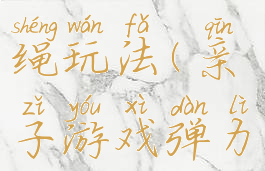 shéng wán fǎ qīn
绳玩法(亲
zǐ yóu xì dàn lì
子游戏弹力